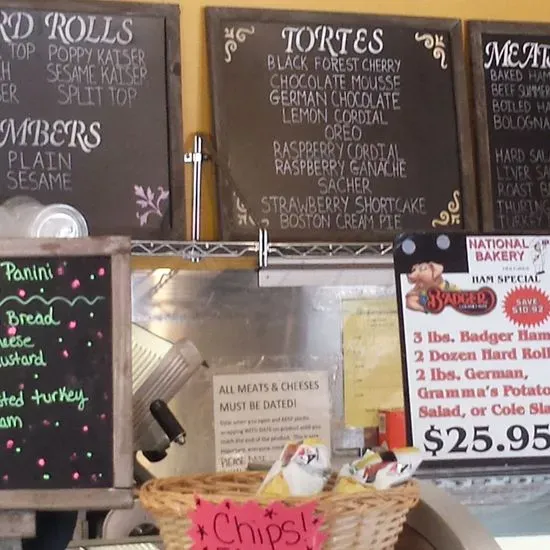 RD ROLLS
TOP POPPY KAISER
SESAME KAISER
SPLIT TOP
MBERS
PLAIN
SESAME
TORTES
BLACK FOREST CHERRY
CHOCOLATE MOUSSE
GERMAN CHOCOLATE
LEMON CORDIAL
OREO
RASPBERRY CORDIAL
RASPBERRY GANACHE
SACHER
STRAWBERRY SHORTCAKE
BOSTON CREAM PIE
MEAT
BAKED HAM
BEEF SUMMER
BOILED HA
BOLOGNA
HARD SALA
LIVER SA
ROAST B
THURING
TURKEY
Panini
Bread
eese
ustard
sted turkey
am
ALL MEATS & CHEESES
MUST BE DATED!
NATIONAL
BAKERY
HAM SPECIAL
BADGER
SAVE
$10.92
3 lbs. Badger Ham
2 Dozen Hard Roll
2 lbs. German,
Gramma's Potato
Salad, or Cole Sla
$25.95
Chips!